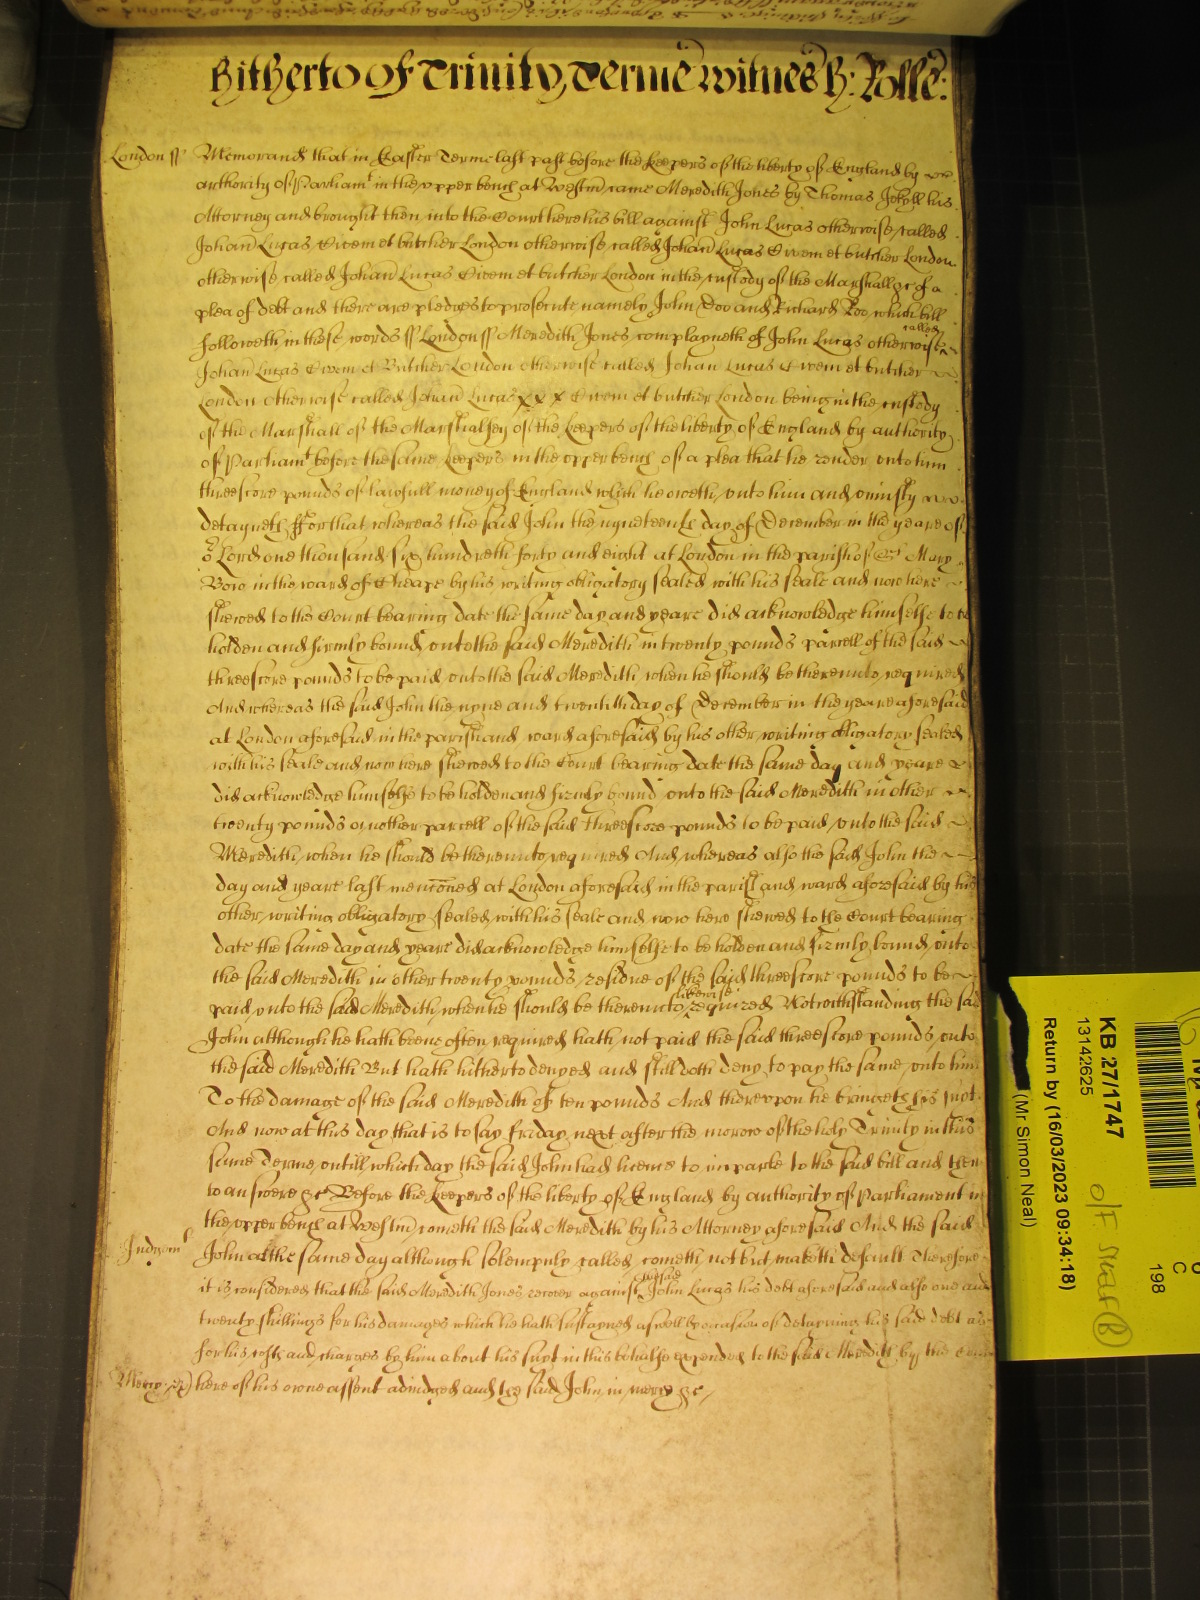 Hitherto of Trinity Terme witnes H: Rolle:
London ss Memorand that in Easter Terme last past before the keepers of the liberty of England by
authority of Parliamt in the upper bench at Westm came Meredith Jones by Thomas Jekyll his
Attorney and brought then into the Court here his bill against John Lucas otherwise called
Johan Lucas Civem et butcher London otherwise called Johan Lucas Civem et butcher London
otherwise called Johan Lucas Civem et butcher London in the custody of the Marshall &c of a
plea of debt and there are pledges to prosecute namely John Doo and Richard Roo which bill
followeth in these words ss London ss Meredith Jones complayneth of John Lucas otherwise called
Johan Lucas Civem et Butcher London otherwise called Johan Lucas Civem et butcher
London otherwise called Johan Lucas x x x Civem et butcher London being in the custody
of the Marshall of the Marshalsey of the keepers of the liberty of England by authority
of Parliamt before the same keepers in the upper bench of a plea that he render unto him
threescore pounds of lawfull money of England which he oweth unto him and uniustly
detayneth ffor that whereas the said John the nyneteenth day of December in the yeare of
or Lord one thousand six hundreth forty and eight at London in the parish of St Mary
Bow in the ward of Cheape by his writing obligatory sealed with his seale and now here
shewed to the Court bearing date the same day and yeare did acknowledge himselfe to be
holden and firmly bound unto the said Meredith in twenty pounds parcell of the said
threescore pounds to be paid unto the said Meredith when he should be thereunto required
And whereas the said John the nyne and twentith day of December in the yeare aforesaid
at London aforesaid in the parish and ward aforesaid by his other writing obligatory sealed
with his seale and now here shewed to the Court bearing date the same day and yeare
did acknowledge himselfe to be holden and firmly bound unto the said Meredith in other
twenty pounds another parcell of the said threescore pounds to be paid unto the said
Meredith when he should be thereunto required And whereas also the said John the
day and yeare last menconed at London aforesaid in the parish and ward aforesaid by his
other writing obligatory sealed with his seale and now here shewed to the Court bearing
date the same day and yeare did acknowledge himselfe to be holden and firmly bound unto
the said Meredith in other twenty pounds residue of the said threescore pounds to be
paid unto the said Meredith when he should be thereunto likewise required Notwithstanding the said
John although he hath beene often required hath not paid the said threescore pounds unto
the said Meredith But hath hitherto denyed and still doth deny to pay the same unto him
To the damage of the said Meredith of ten pounds And thereupon he bringeth his suyt
And now at this day that is to say friday next after the morow of the holy Trinity in this
same Terme untill which day the said John had licence to imparle to the said bill and then
to answere &c Before the keepers of the liberty of England by authority of Parliament in
the upper bench at Westm cometh the said Meredith by his Attorney aforesaid And the said
John at the same day although solempnly called cometh not but maketh default Therefore
Judgemt it is considered that the said Meredith Jones recover against John Lucas his debt aforesaid and also one and
twenty shillings for his damages which he hath sustayned aswell by occasion of detayning his said debt as
for his costs and charges by him about his suyt in this behalfe expended to the said Meredith by the
Mercy here of his owne assent adiudged and the said John in mercy &c
KB 27/1747
13142625
Return by (16/03/2023 09:34:18)
(Mr Simon Neal)
C
198